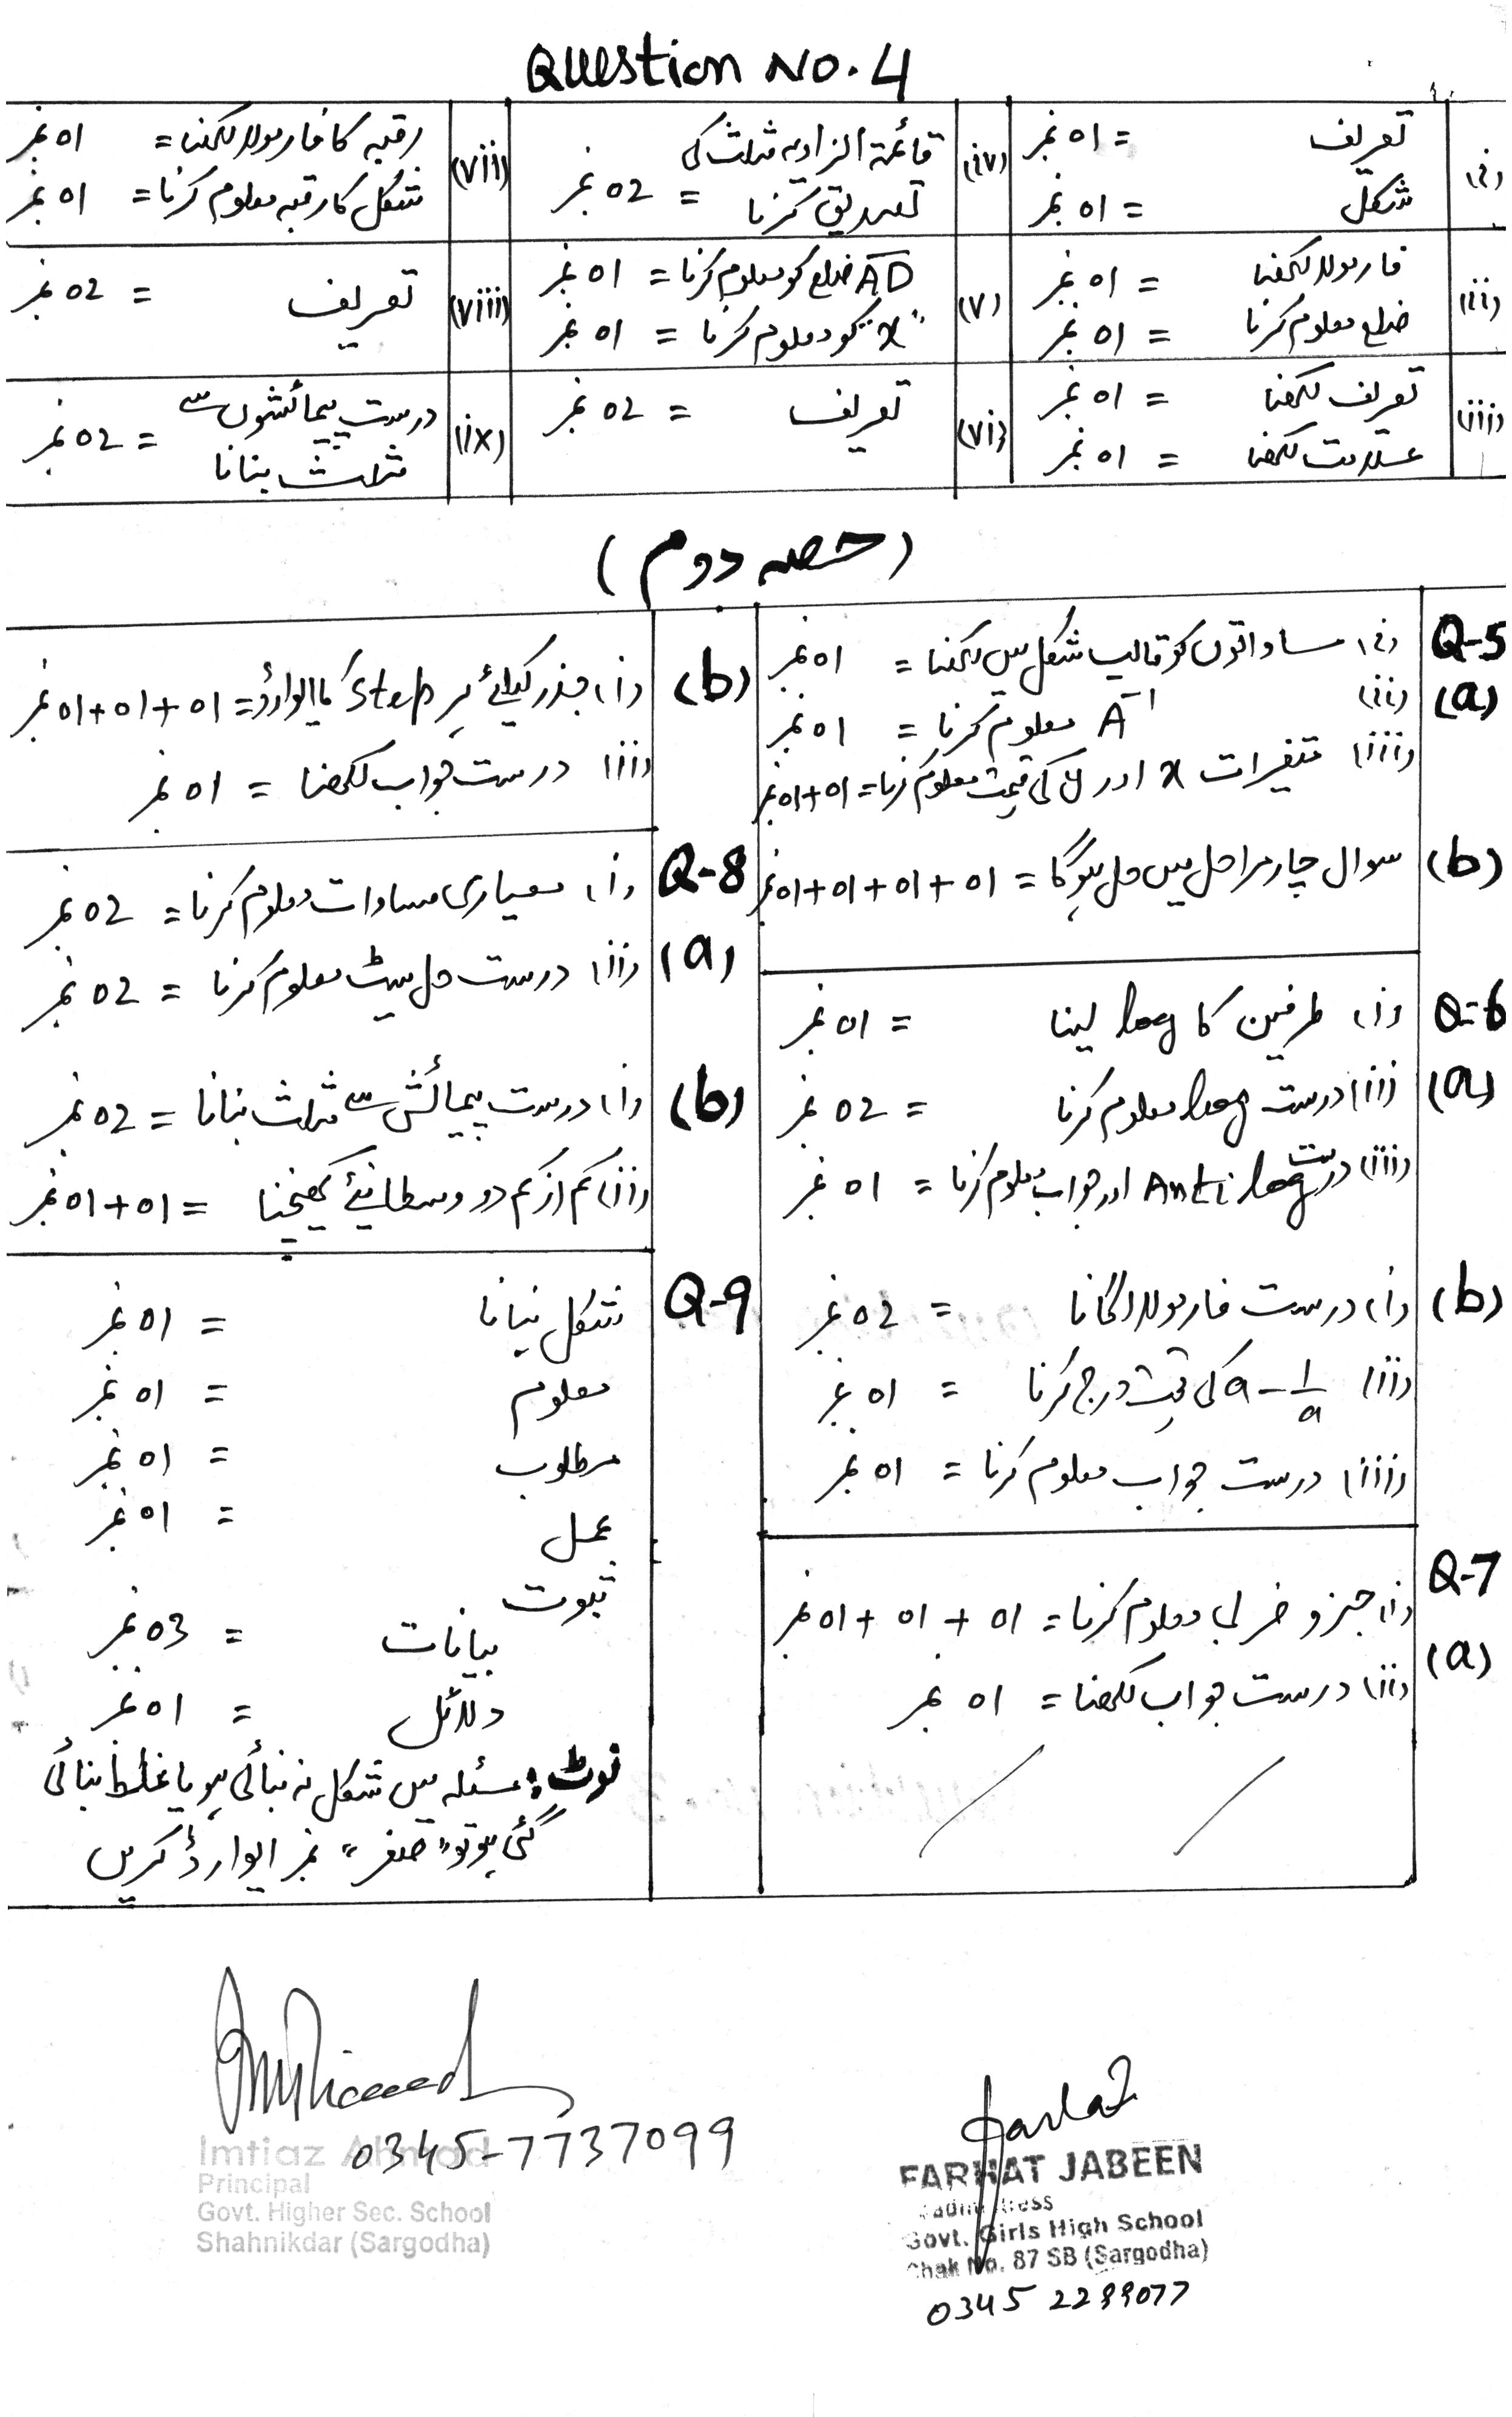 Question No. 4
(i) تعریف = 01 نمبر
شکل = 01 نمبر
(ii) فارمولا لکھنا = 01 نمبر
ضلع معلوم کرنا = 01 نمبر
(iii) تعریف لکھنا = 01 نمبر
علامت لکھنا = 01 نمبر
(iv) قائمۃ الزاویہ مثلث کی
تصدیق کرنا = 02 نمبر
(v) AD ضلع کو معلوم کرنا = 01 نمبر
"x" کو معلوم کرنا = 01 نمبر
(vi) تعریف = 02 نمبر
(vii) رقبہ کا فارمولا لکھنا = 01 نمبر
شکل کا رقبہ معلوم کرنا = 01 نمبر
(viii) تعریف = 02 نمبر
(ix) درست پیمائشوں سے
مثلث بنانا = 02 نمبر
(حصہ دوم)
Q-5
(a) (i) مساواتوں کو قالب شکل میں لکھنا = 01 نمبر
(ii) A⁻¹ معلوم کرنا = 01 نمبر
(iii) متغیرات x اور y کی قیمت معلوم کرنا = 01+01 نمبر
(b) سوال چار مراحل میں حل ہوگا = 01+01+01+01 نمبر
Q-6
(a) (i) طرفین کا log لینا = 01 نمبر
(ii) درست log معلوم کرنا = 02 نمبر
(iii) درست Anti log اور جواب معلوم کرنا = 01 نمبر
(b) (i) درست فارمولا لگانا = 02 نمبر
(ii) a - 1/a کی قیمت درج کرنا = 01 نمبر
(iii) درست جواب معلوم کرنا = 01 نمبر
Q-7
(a) (i) جزو ضربی معلوم کرنا = 01 + 01 + 01 نمبر
(ii) درست جواب لکھنا = 01 نمبر
(b) (i) جذر کیلئے ہر Step کا ایوارڈ = 01+01+01 نمبر
(ii) درست جواب لکھنا = 01 نمبر
Q-8
(a) (i) معیاری مساوات معلوم کرنا = 02 نمبر
(ii) درست حل سیٹ معلوم کرنا = 02 نمبر
(b) (i) درست پیمائش سے مثلث بنانا = 02 نمبر
(ii) کم از کم دو وسطانیے کھینچنا = 01+01 نمبر
Q-9 شکل بنانا = 01 نمبر
معلوم = 01 نمبر
مطلوب = 01 نمبر
عمل = 01 نمبر
ثبوت
بیانات = 03 نمبر
دلائل = 01 نمبر
نوٹ: مسئلہ میں شکل نہ بنائی ہو یا غلط بنائی
گئی ہو تو "صفر" نمبر ایوارڈ کریں
0345-7737099
Imtiaz Ahmad
Principal
Govt. Higher Sec. School
Shahnikdar (Sargodha)
Farhat
FARHAT JABEEN
Govt. Girls High School
Chak No. 87 SB (Sargodha)
0345 2299077